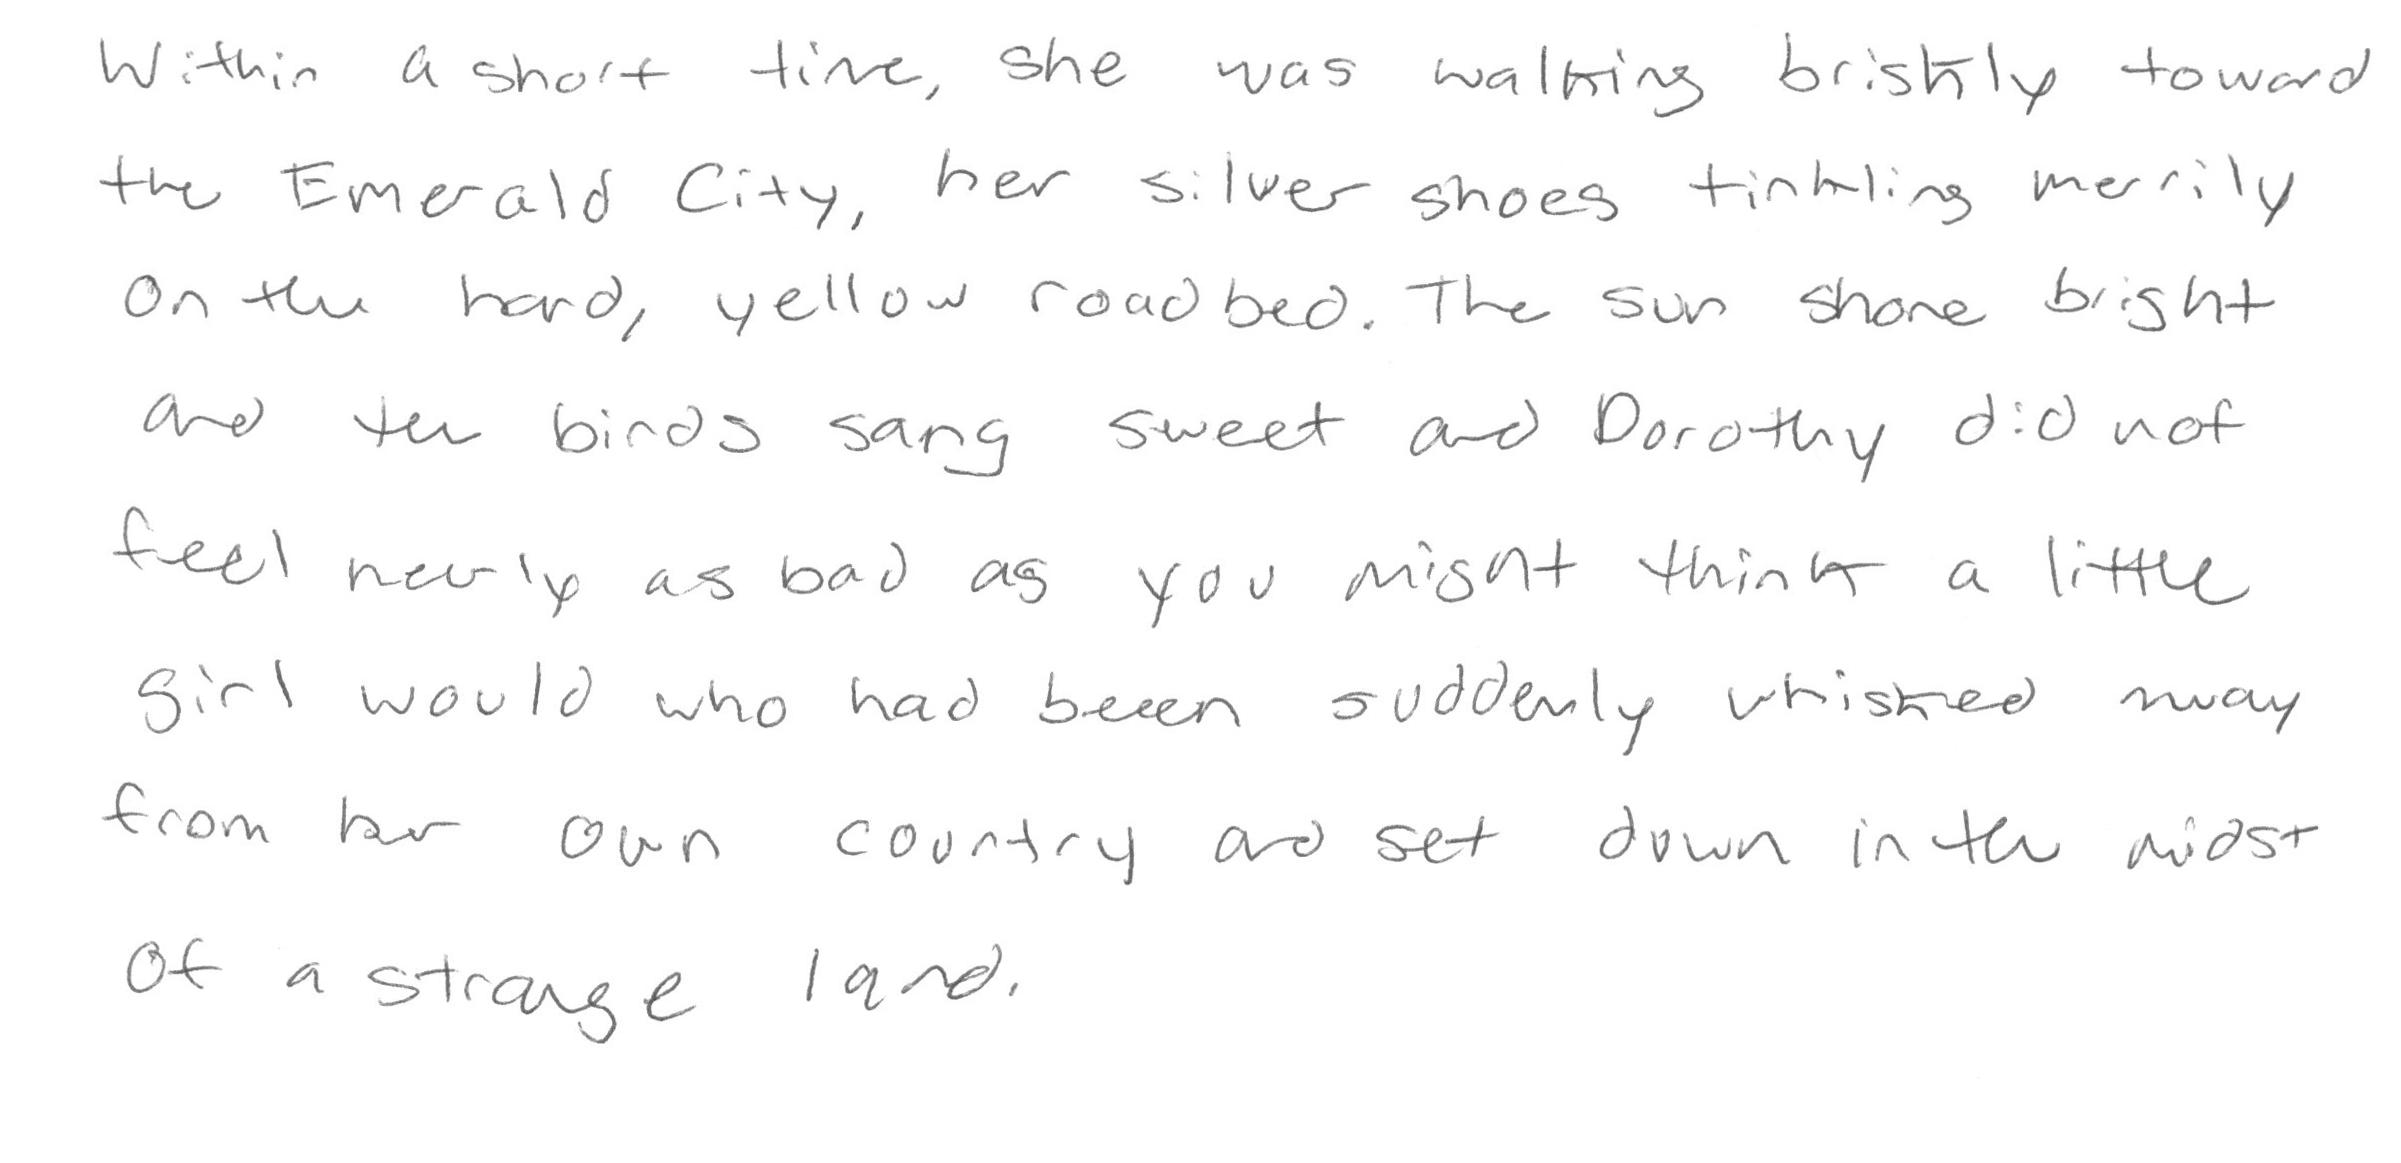 Within a short time, she was walking briskly toward
the Emerald City, her silver shoes tinkling merrily
on the hard, yellow roadbed. The sun shone bright
and the birds sang sweet and Dorothy did not
feel nearly as bad as you might think a little
girl would who had beeen suddenly whisked away
from her own country and set down in the midst
of a strange land.